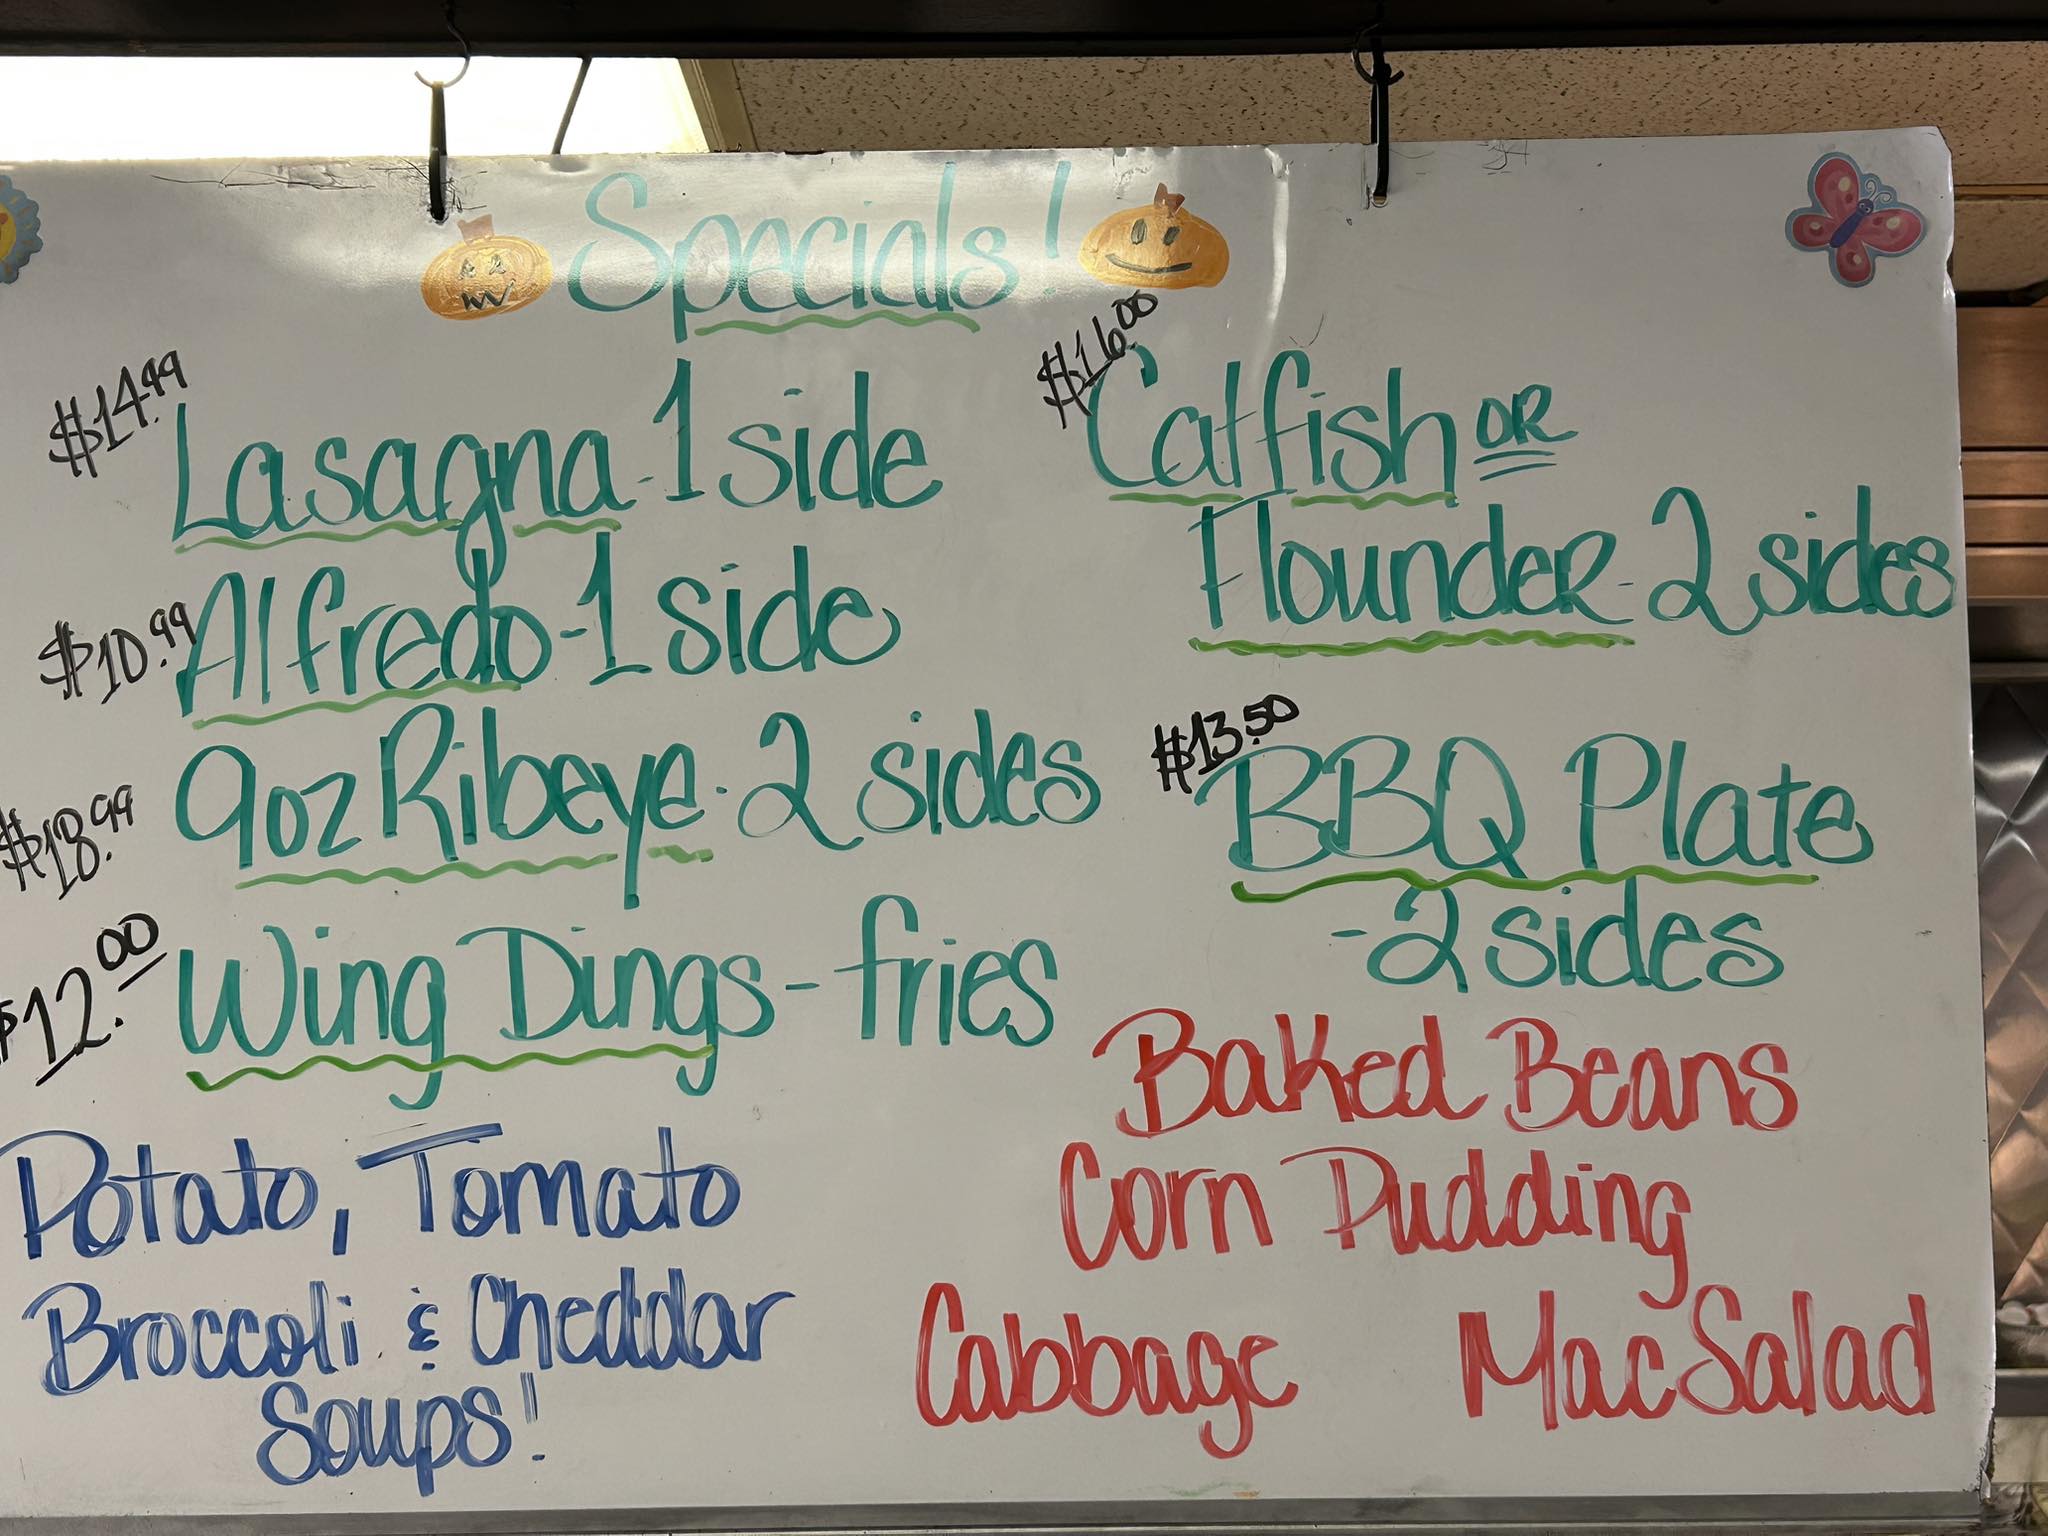 Specials!
$14.99
Lasagna-1 side
$10.99
Alfredo-1 side
$18.99
9oz Ribeye-2 sides
$12.00
Wing Dings-fries
Potato, Tomato
Broccoli & Cheddar
Soups!
$16.00
Catfish OR
Flounder-2 sides
$13.50
BBQ Plate
-2 sides
Baked Beans
Corn Pudding
Cabbage Mac Salad